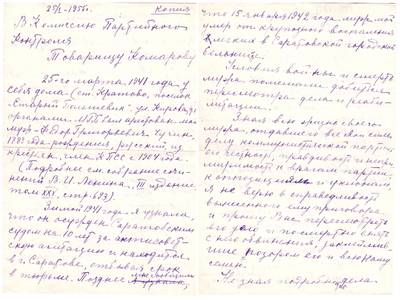 25/I - 1955г. Копия
В Комиссию Партийного
Контроля
Товарищу Комарову
25го марта 1941 года, у
себя дома (ст. Кратово, поселок
"Старый Большевик" ул. Кирова 2)
органами МГБ был арестован мой
муж - Федор Григорьевич Чучин,
1883 года рождения, русский, из
крестьян, член КПСС с 1904 года
(Подробнее см. собрание сочине-
ний В. И. Ленина, III издание
том XXV, стр. 623).
Зимой 1941 года я узнала,
что он осужден Саратовским
судом на 10 лет за антисовет-
скую агитацию и находится
в г. Саратове, отбывает срок
в тюрьме. Позднее
что 15 января 1942 года муж мой
умер от крупозного воспаления
легких в Саратовской городской
больнице.
Условия войны и смерть
мужа помешали добиться
пересмотра дела и реаби-
литации.
Зная всю жизнь своего
мужа, отдавшего все свои силы
делу коммунистической партии,
его честность, правдивость и непри-
миримость к врагам партии,
к оппозициям и уклонам,
я не верю в справедливость
вынесенного ему приговора
и прошу Вас пересмотреть
его дело и посмертно снять
с него обвинения,
позором его и
семью.
Не зная подробно дела